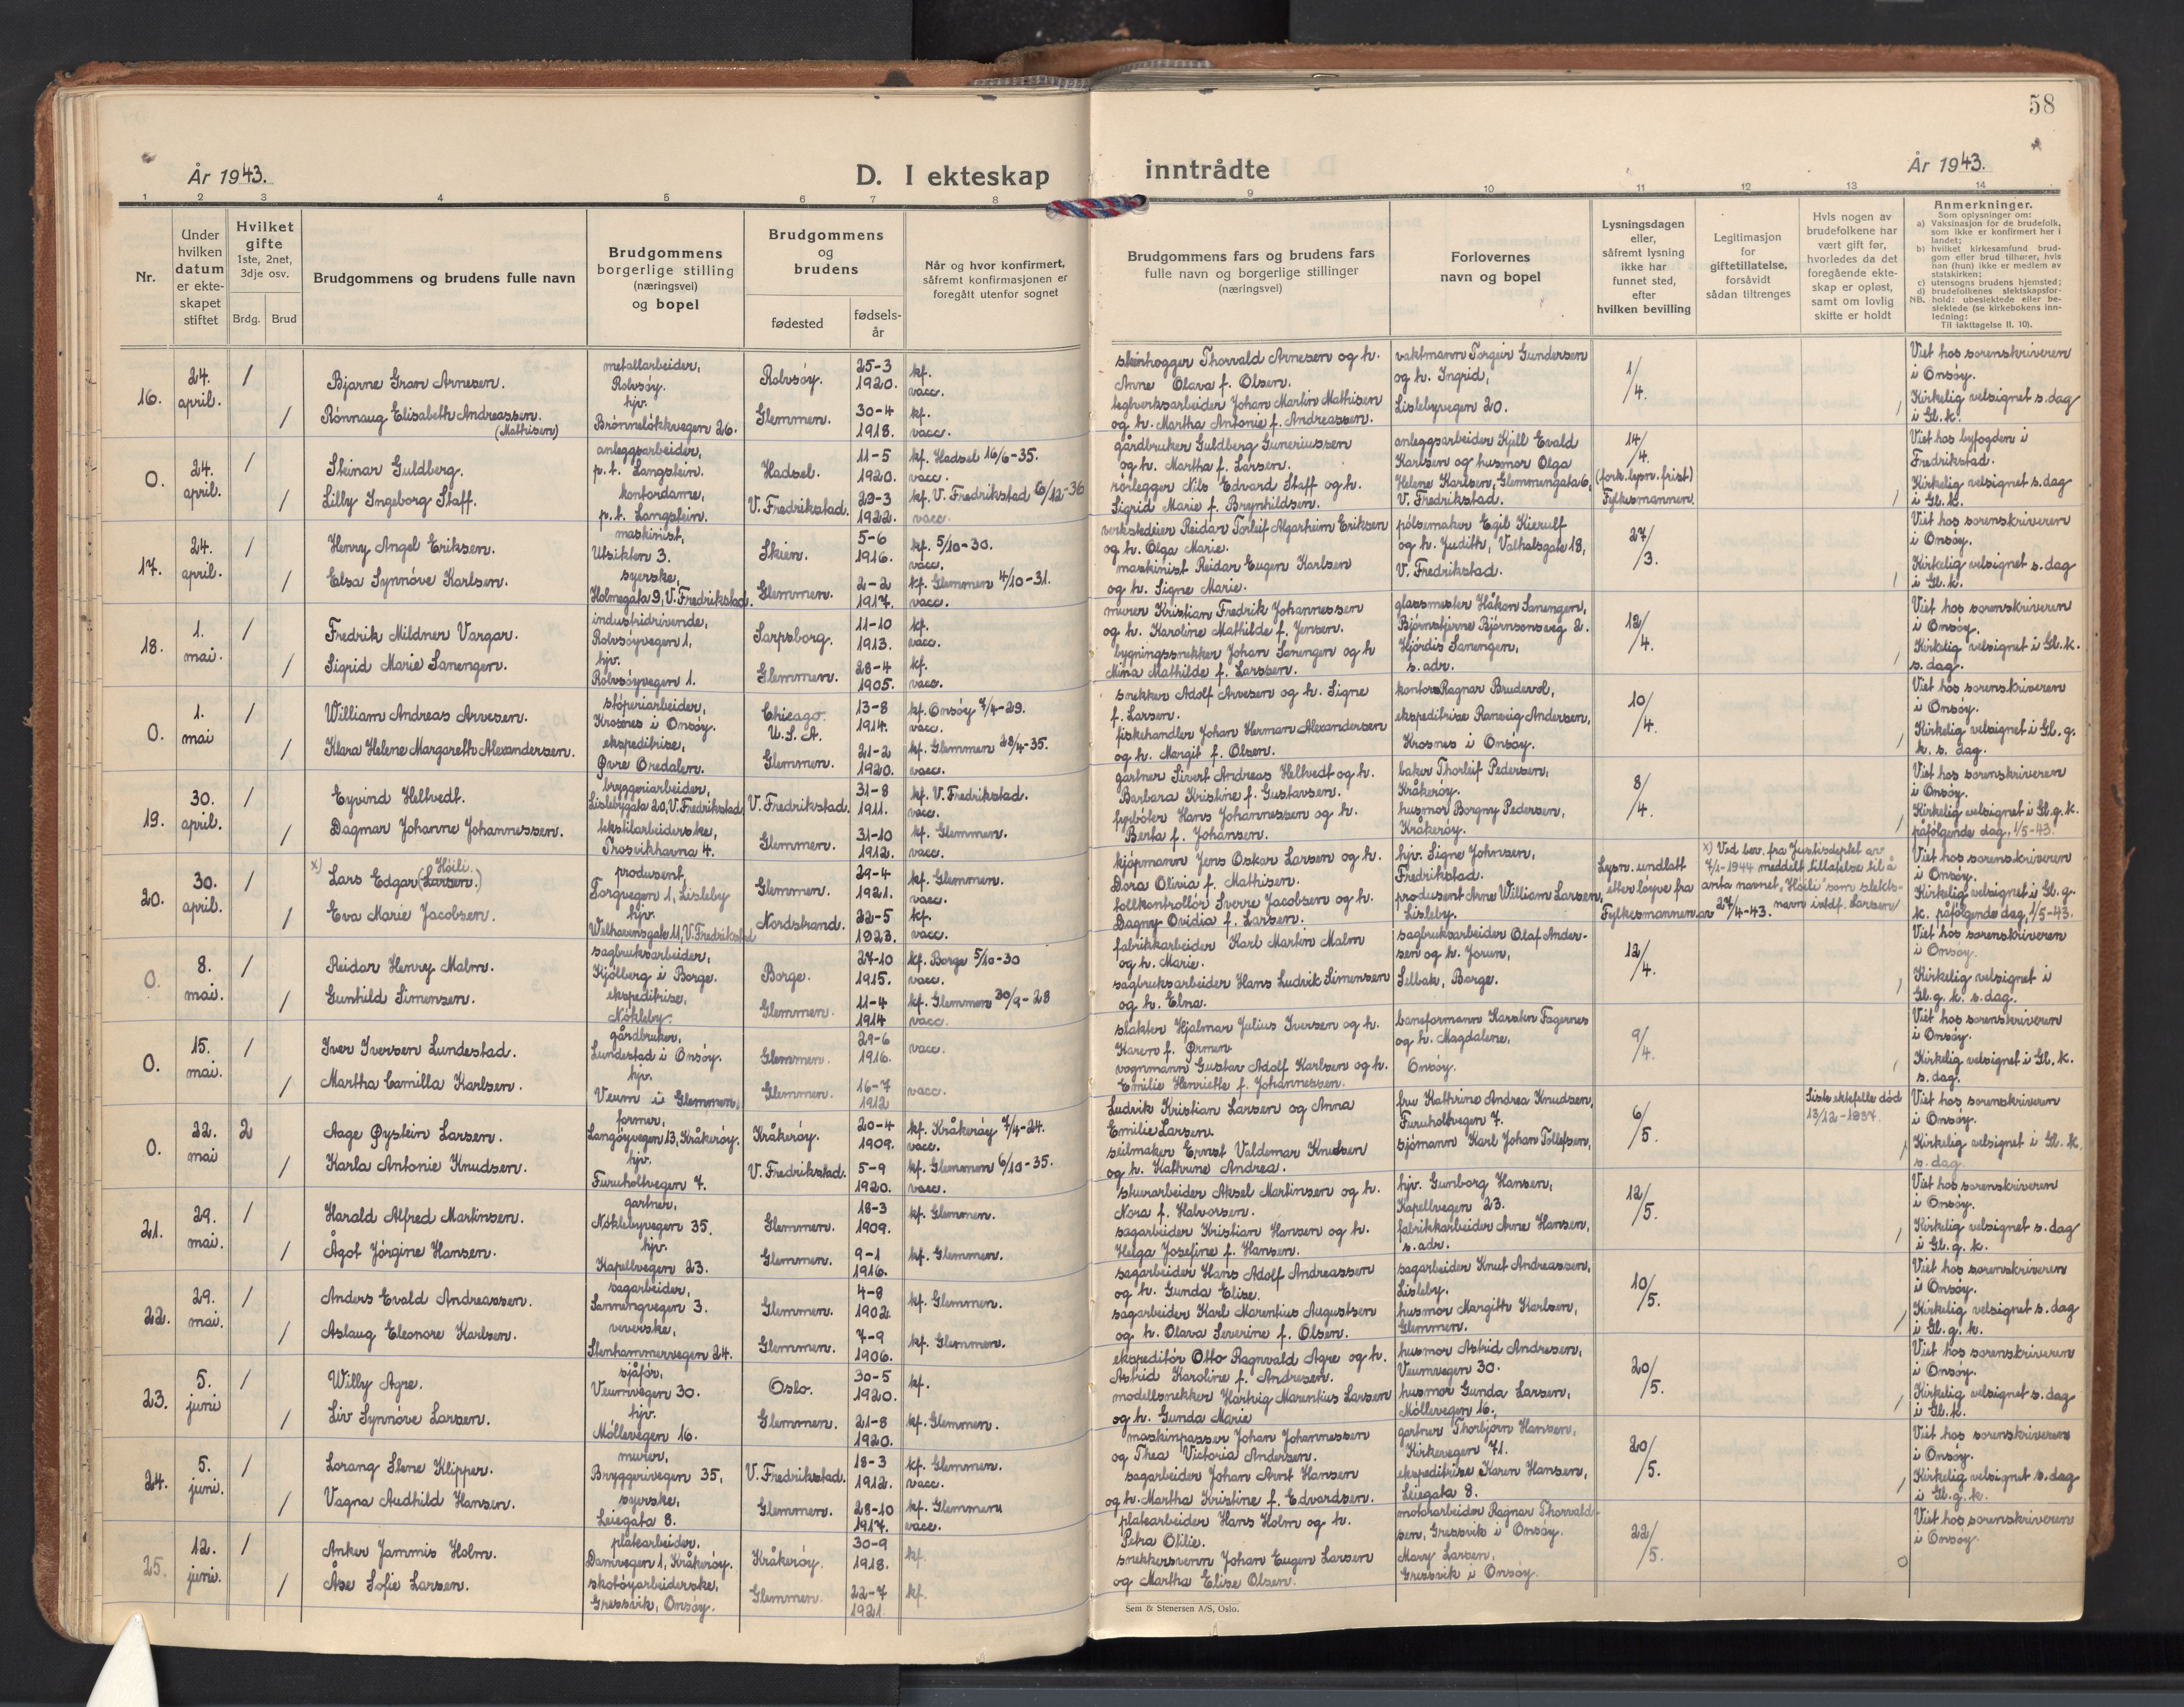 58
År 1943.
D. I ekteskap inntrådte
År 1943.
1 2 3 4 5 6 7 8 9 10 11 12 13 14
Nr.
Under
hvilken
datum
er ekte-
skapet
stiftet
Hvilket
gifte
1ste, 2net,
3dje osv.
Brdg. Brud
Brudgommens og brudens fulle navn
Brudgommens
borgerlige stilling
(næringsvei)
og bopel
Brudgommens
og
brudens
fødested
fødsels-
år
Når og hvor konfirmert,
såfremt konfirmasjonen er
foregått utenfor sognet
Brudgommens fars og brudens fars
fulle navn og borgerlige stillinger
(næringsvei)
Forlovernes
navn og bopel
Lysningsdagen
eller,
såfremt lysning
ikke har
funnet sted,
efter
hvilken bevilling
Legitimasjon
for
giftetillatelse,
forsåvidt
sådan tiltrenges
Hvis nogen av
brudefolkene har
vært gift før,
hvorledes da det
foregående ekte-
skap er opløst,
samt om lovlig
skifte er holdt
Anmerkninger.
Som oplysninger om:
a) Vaksinasjon for de brudefolk,
som ikke er konfirmert her i
landet;
b) hvilket kirkesamfund brud-
gom eller brud tilhører, hvis
han (hun) ikke er medlem av
statskirken;
c) utensogns brudens hjemsted;
d) brudefolkenes slektskapsfor-
NB. hold: ubeslektede eller be-
slektede (se kirkebokens inn-
ledning:
Til iakttagelse II. 10).
16.
24.
april.
1
Bjarne Gran Arnesen.
metallarbeider,
Rolvsøy.
Rolvsøy.
25-3
1920.
kf.
vacc.
1
Rönnaug Elisabeth Andreassen.
(Mathisen)
hjv.
Brönnelökkvegen 26.
Glemmen.
30-4
1918.
kf.
vacc.
steinhogger Thorvald Arnesen og h.
Anne Olava f. Olsen.
teglverksarbeider Johan Martin Mathisen
og h. Martha Antonie f. Andreassen.
vaktmann Torgeir Gundersen
og h. Ingrid,
Lislebyvegen 20.
1/4.
Viet hos sorenskriveren
i Onsøy.
Kirkelig velsignet s. dag
i Gl. k.
0.
24.
april.
1
Steinar Guldberg.
anleggsarbeider,
p.t. Langstein.
Hadsel.
11-5
1920.
kf. Hadsel 16/6-35.
vacc.
1
Lilly Ingeborg Staff.
kontordame,
p.t. Langstein.
V. Fredrikstad.
29-3
1922.
kf. V. Fredrikstad 6/12-36
vacc.
gårdbruker Guldberg Guneriussen
og h. Martha f. Larsen.
rørlegger Nils Edvard Staff og h.
Sigrid Marie f. Brynhildsen.
anleggsarbeider Kjell Evald
Karlsen og husmor Olga
Helene Karlsen, Glemmengata 6,
V. Fredrikstad.
14/4.
(fork. lysn. frist)
Fylkesmannen.
Viet hos byfogden i
Fredrikstad.
Kirkelig velsignet s. dag
i Gl. k.
17.
24.
april.
1
Henry Angel Eriksen.
maskinist,
Utsikten 3.
Skien.
5-6
1916.
kf. 5/10-30.
vacc.
1
Elsa Synnöve Karlsen.
syerske,
Holmegata 9, V. Fredrikstad.
Glemmen.
2-2
1917.
kf. Glemmen 4/10-31.
vacc.
verkstedeier Reidar Torleif Algarheim Eriksen
og h. Olga Marie.
maskinist Reidar Eugen Karlsen
og h. Signe Marie.
pölsemaker Egil Kierulf
og h. Judith, Valhalsgate 18,
V. Fredrikstad.
27/3.
Viet hos sorenskriveren
i Onsøy.
Kirkelig velsignet s. dag
i Gl. k.
18.
1.
mai.
1
Fredrik Mildner Vargar.
industridrivende,
Rolvsöyvegen 1,
Sarpsborg.
11-10
1913.
kf.
vacc.
1
Sigrid Marie Sanengen.
hjv.
Rolvsöyvegen 1.
Glemmen.
28-4
1905.
kf.
vacc.
murer Kristian Fredrik Johannessen
og h. Karoline Mathilde f. Jensen.
bygningssnekker Johan Sanengen og h
Mina Mathilde f. Larssen.
glassmester Håkon Sanengen,
Björnstjerne Björnsonsveg 2.
Hjördis Sanengen,
s. adr.
12/4.
Viet hos sorenskriveren
i Onsøy.
Kirkelig velsignet i Gl. k.
s. dag.
0.
1.
mai
1
William Andreas Arvesen.
stöperiarbeider,
Krosnes i Onsøy.
Chicago.
U.S.A.
13-8
1914.
kf. Onsøy 7/4-29.
vacc.
1
Klara Helene Margareth Alexandersen.
ekspeditrise,
Øvre Oredalen.
Glemmen.
21-2
1920.
kf. Glemmen 28/4-35.
vacc.
snekker Adolf Arvesen og h. Signe
f. Larsen.
fiskehandler Johan Herman Alexandersen
og h. Margit f. Olsen.
kontors. Ragnar Brudevol,
ekspeditrise Ranveig Andersen,
Krosnes i Onsøy.
10/4.
Viet hos sorenskriveren
i Onsøy.
Kirkelig velsignet i Gl. g.
k. s. dag.
19.
30.
april.
1
Eyvind Heltvedt.
bryggeriarbeider,
Lislebygata 20, V. Fredrikstad.
V. Fredrikstad.
31-8
1911.
kf. V. Fredrikstad.
vacc.
1
Dagmar Johanne Johannessen.
tekstilarbeiderske,
Trosvikhavna 4.
Glemmen.
31-10
1912.
kf. Glemmen.
vacc.
gartner Sivert Andreas Heltvedt og h.
Barbara Kristine f. Gustavsen.
fyrböter Hans Johannessen og h.
Berta f. Johansen.
baker Thorleif Pedersen,
Kråkerøy.
husmor Borgny Pedersen,
Kråkerøy.
8/4.
Viet hos sorenskriveren
i Onsøy.
Kirkelig velsignet i Gl. g. k.
påfölgende dag, 1/5-43.
20.
30.
april.
1
x) Lars Edgar (Larsen.) Höili.
produsent,
Torgvegen 1, Lisleby
Glemmen.
29-4
1921.
kf. Glemmen.
vacc.
1
Eva Marie Jacobsen.
hjv.
Welhavensgate 11, V. Fredrikstad
Nordstrand.
22-5
1923.
kf.
vacc.
kjöpmann Jens Oskar Larsen og h.
Dora Olivia f. Mathisen.
tollkontrollör Sverre Jacobsen og h.
Dagny Ovidia f. Larsen.
hjv. Signe Johnsen,
Fredrikstad.
produsent Arne William Larsen,
Lisleby.
Lysn. undlatt
etter löyve fra
Fylkesmannen av 27/4-43.
x) Ved bev. fra Justisdeptet av
7/1-1944 meddelt tillatelse til å
anta navnet "Höili" som slekts-
navn istdf. Larsen
Viet hos sorenskriveren
i Onsøy.
Kirkelig velsignet i Gl. g.
k. påfölgende dag, 1/5-43.
0.
8.
mai.
1
Reidar Henry Malm.
sagbruksarbeider,
Kjölberg i Borge.
Borge.
27-10
1915.
kf. Borge 5/10-30
vacc.
1
Gunhild Simensen.
ekspeditrise,
Nökleby.
Glemmen.
11-4
1914
kf. Glemmen 30/9-28
vacc.
fabrikkarbeider Karl Martin Malm
og h. Marie.
sagbruksarbeider Hans Ludvik Simensen
og h. Elna.
sagbruksarbeider Olaf Ander-
sen og h. Jorun,
Selbak, Borge.
12/4.
Viet hos sorenskriveren
i Onsøy.
Kirkelig velsignet i
Gl. g. k. s. dag.
0.
15.
mai.
1
Iver Iversen Lundestad.
gårdbruker,
Lundestad i Onsøy.
Glemmen.
29-6
1916.
vacc.
1
Martha Camilla Karlsen.
hjv.
Veum i Glemmen.
Glemmen.
16-7
1912
vacc.
slakter Hjalmar Julius Iversen og h.
Karen f. Ørmen
vognmann Gustav Adolf Karlsen og h.
Emilie Henriette f. Johannessen.
baneformann Karsten Fagernes
og h. Magdalene,
Onsøy.
9/4.
Viet hos sorenskriveren
i Onsøy.
Kirkelig velsignet i Gl. k.
s. dag.
0.
22.
mai
2
Aage Øystein Larsen.
former,
Langöyvegen 13, Kråkeröy.
Kråkeröy.
20-4
1909.
kf. Kråkeröy 7/4-24.
vacc.
1
Karla Antonie Knudsen.
hjv.
Furuholtvegen 7.
V. Fredrikstad.
5-9
1920.
kf. Glemmen 6/10-35.
vacc.
Ludvik Kristian Larsen og Anna
Emilie Larsen.
seilmaker Ernst Valdemar Knudsen
og h. Kathrine Andrea.
fru Kathrine Andrea Knudsen,
Furuholtvegen 7.
sjömann Karl Johan Tollefsen,
6/5.
Siste ektefelle död
13/12-1937.
Viet hos sorenskriveren
i Onsøy.
Kirkelig velsignet i Gl. k.
s. dag.
21.
29.
mai.
1
Harald Alfred Martinsen.
gartner,
Nöklebyvegen 35.
Glemmen.
18-3
1909.
kf. Glemmen.
1
Ågot Jörgine Hansen.
hjv.
Kapellvegen 23.
Glemmen.
9-1
1916.
kf. Glemmen.
stuerarbeider Aksel Martinsen og h.
Nora f. Halvorsen.
sagarbeider Kristian Hansen og h.
Helga Josefine f. Hansen.
hjv. Gunborg Hansen,
Kapellvegen 23.
fabrikkarbeider Arne Hansen,
s. adr.
12/5.
Viet hos sorenskriveren
i Onsøy.
Kirkelig velsignet s. dag
i Gl. g. k.
22.
29.
mai.
1
Anders Evald Andreassen.
sagarbeider,
Sanningvegen 3.
Glemmen.
4-8
1902.
kf. Glemmen.
1
Aslaug Eleonore Karlsen.
veverske,
Stenhammervegen 24.
Glemmen.
7-9
1906.
kf. Glemmen.
sagarbeider Hans Adolf Andreassen
og h. Gunda Elise.
sagarbeider Karl Marentius Augustsen
og h. Olava Severine f. Olsen.
sagarbeider Knut Andreassen,
Lisleby.
husmor Margith Karlsen,
Glemmen.
10/5.
Viet hos sorenskriveren
i Onsøy.
Kirkelig velsignet s. dag
i Gl. g. k.
23.
5.
juni
1
Willy Agre.
sjåför,
Veumvegen 30.
Oslo.
30-5
1920.
kf.
1
Liv Synnöve Larsen.
hjv.
Möllevegen 16.
Glemmen.
21-8
1920.
kf. Glemmen.
ekspeditör Otto Ragnvald Agre og h.
Astrid Karoline f. Andresen.
modellsnekker Hartvig Marentius Larsen
og h. Gunda Marie
husmor Astrid Andresen,
Veumvegen 30.
husmor Gunda Larsen,
Möllevegen 16.
20/5.
Viet hos sorenskriveren
i Onsøy.
Kirkelig velsignet s. dag
i Gl. k.
24.
5.
juni.
1
Lorang Stene Klipper.
murer,
Bryggerivegen 35,
V. Fredrikstad.
18-3
1912.
kf. Glemmen.
vacc.
1
Vagna Audhild Hansen.
syerske,
Leiegata 8.
Glemmen.
28-10
1917.
kf. Glemmen
vacc.
maskinpasser Johan Johannessen
og Thea Victoria Andersen.
sagarbeider Johan Arnt Hansen
og h. Martha Kristine f. Edvardsen.
gartner Thorbjörn Hansen,
Kirkevegen 71.
ekspeditrise Karen Hansen,
Leiegata 8.
20/5.
Viet hos sorenskriveren
i Onsøy.
Kirkelig velsignet s. dag
i Gl. g. k.
25.
12.
juni.
1
Anker Jammis Holm.
platearbeider.
Damvegen 1, Kråkeröy.
Kråkeröy.
30-9
1918.
kf.
1
Åse Sofie Larsen.
skotöyarbeiderske,
Gressvik, Onsöy.
Glemmen.
22-7
1921.
kf.
platearbeider Hans Holm og h.
Petra Otilie.
snekkersvenn Johan Eugen Larsen
og Martha Elise Olsen.
motorarbeider Ragnar Thorvald-
sen, Gressvik i Onsøy.
Mary Larsen,
Gressvik i Onsøy.
22/5.
0
Viet hos sorenskriveren
i Onsøy.
Sem & Stenersen A/S, Oslo.